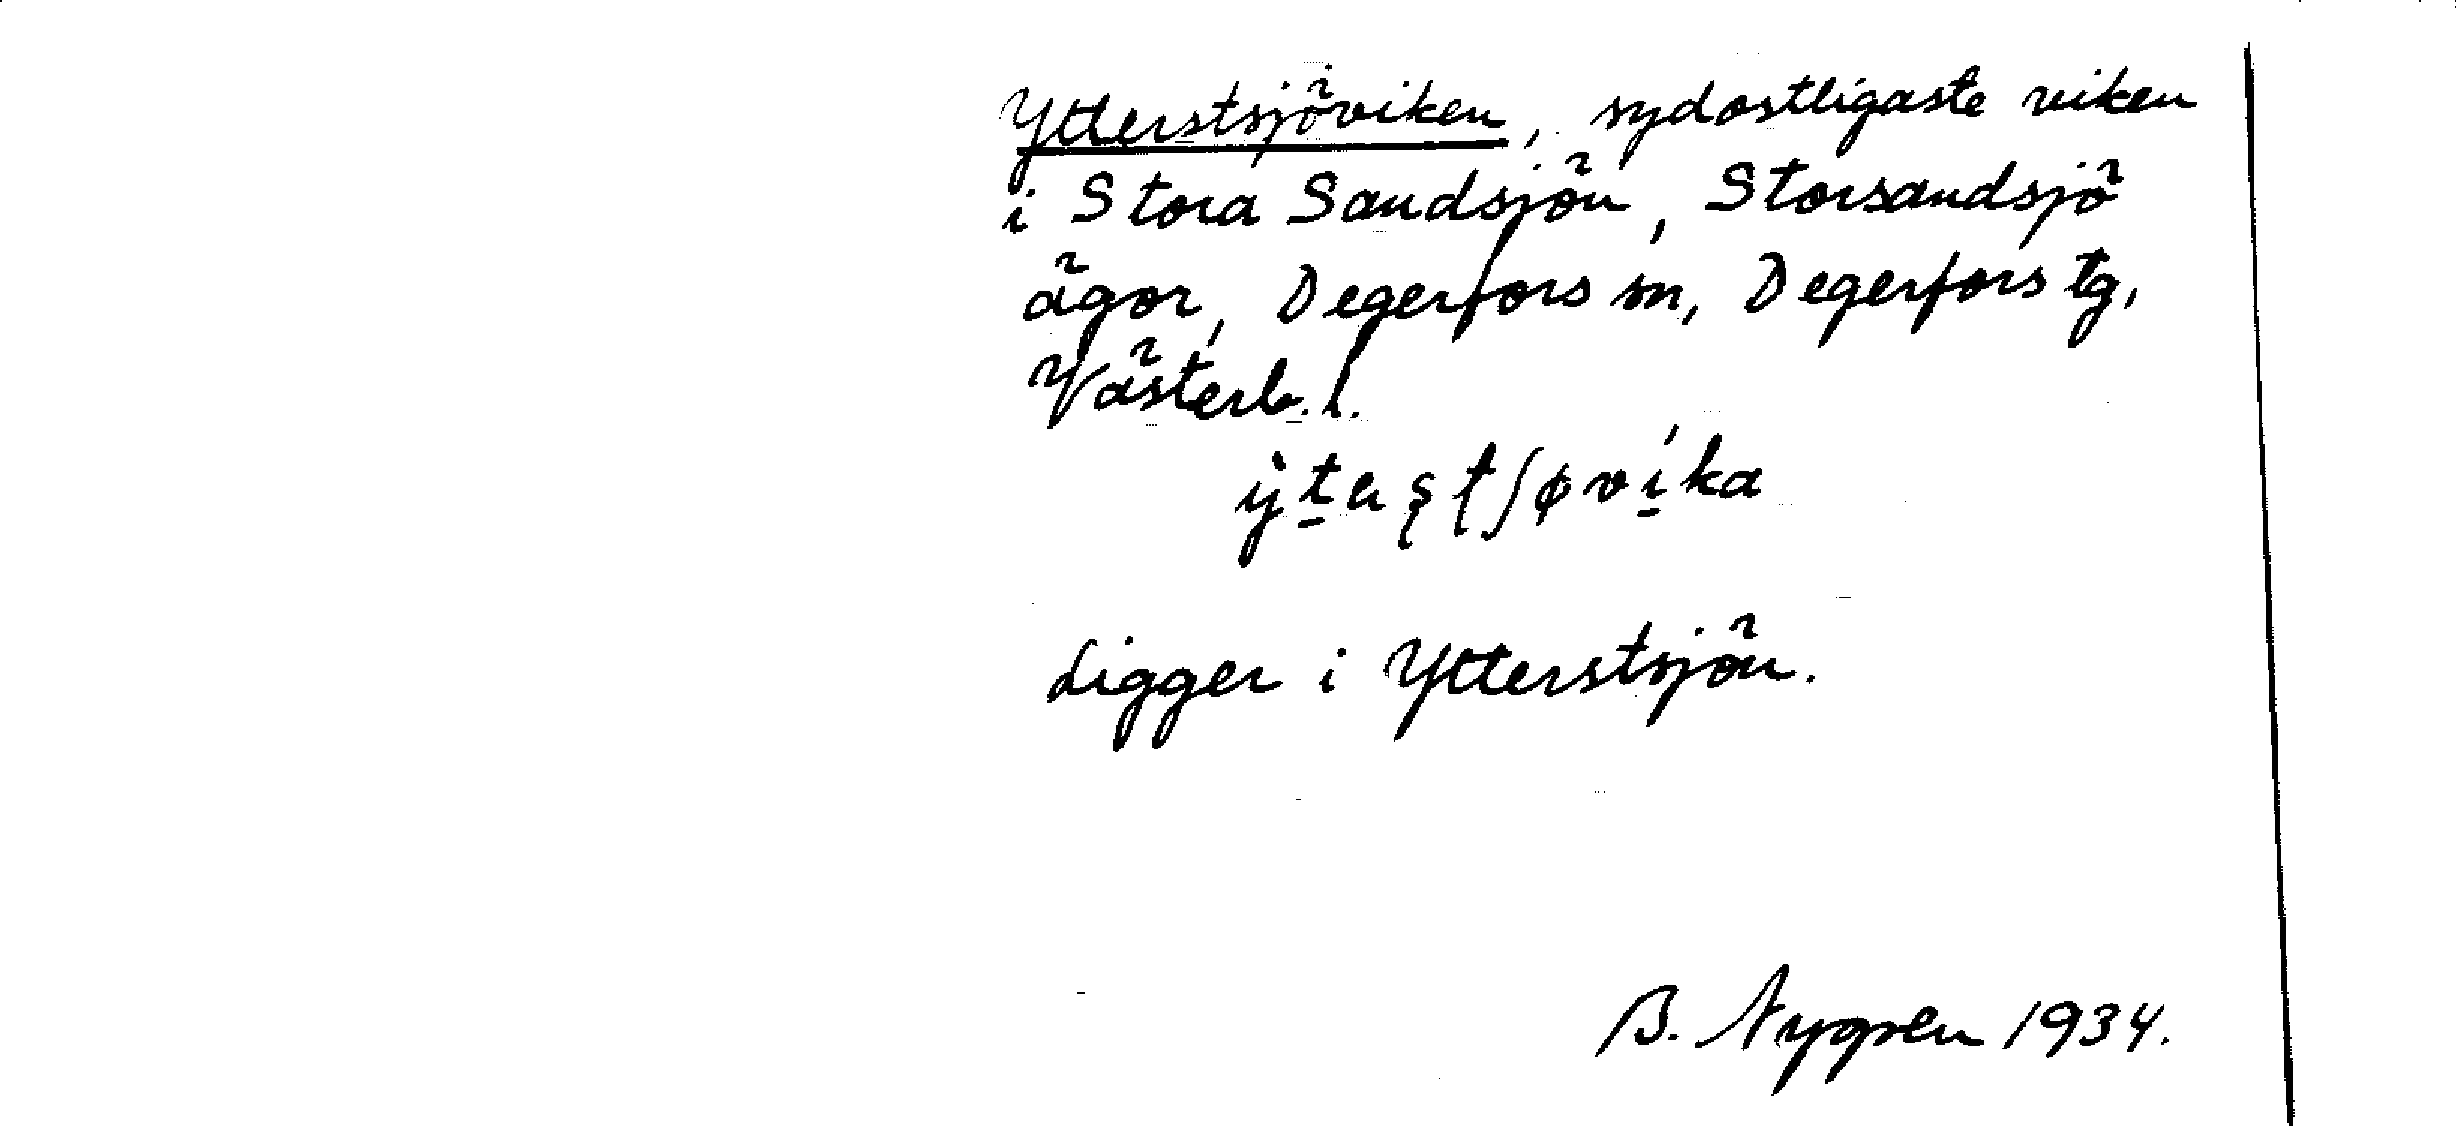 Ytterstsjöviken, sydostligaste viken
i Stora Sandsjön, Storsandsjö
ägor, Degerfors sn, Degerfors tg,
Västerb. l.
Ligger i Ytterstsjön.
B. Nygren 1934.